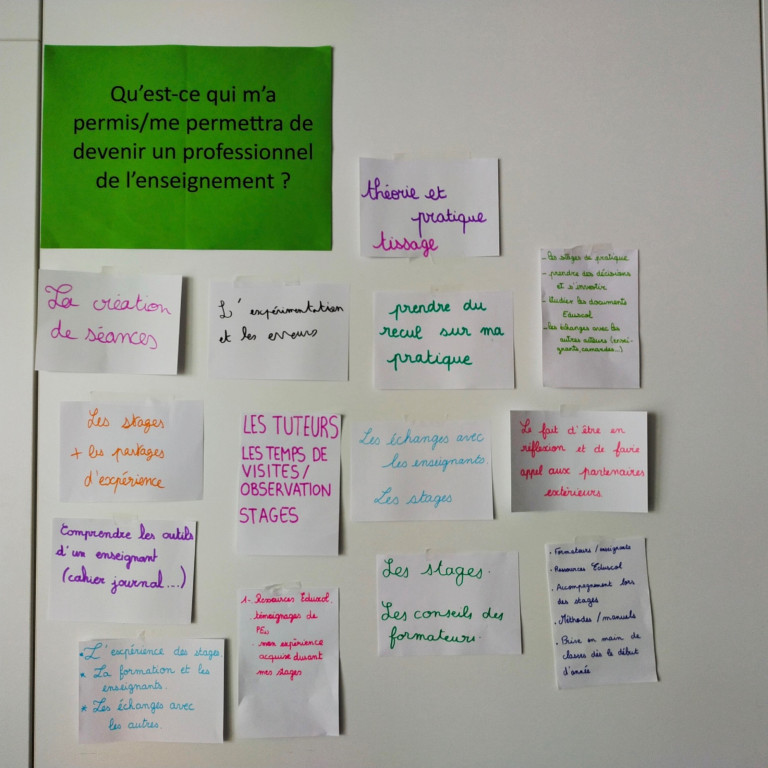 Qu'est-ce qui m'a
permis/me permettra de
devenir un professionnel
de l'enseignement ?
théorie et
pratique
tissage
La création
de séances
L'expérimentation
et les erreurs
prendre du
recul sur ma
pratique
- Les stages de pratique
- prendre des décisions
et s'investir
- étudier les documents
Eduscol
- les échanges avec les
autres acteurs (ensei-
gnants, camarades...)
Les stages
+ les partages
d'expérience
LES TUTEURS
LES TEMPS DE
VISITES/
OBSERVATION
STAGES
Les échanges avec
les enseignants.
Les stages
Le fait d'être en
réflexion et de faire
appel aux partenaires
extérieurs.
Comprendre les outils
d'un enseignant
(cahier journal...)
1- Ressources Eduscol.
. témoignages de
PEs
. mon expérience
acquise durant
mes stages
Les stages.
Les conseils des
formateurs.
. Formateurs / enseignants
. Ressources Eduscol
. Accompagnement lors
des stages
. Méthodes / manuels
. Prise en main de
classes dès le début
d'année
* L'expérience des stages
* La formation et les
enseignants.
* Les échanges avec
les autres.